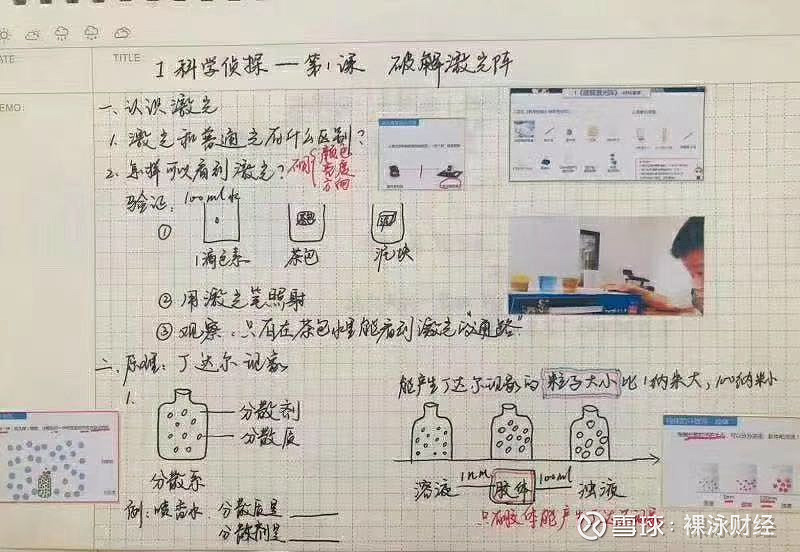 DATE
TITLE:
I 科学侦探—第1课 破解激光阵
MEMO:
一、认识激光
1. 激光和普通光有什么区别?
2. 怎样可以看到激光?
颜色
亮度
方向
验证:100ml水
①
1滴色素
茶包
泥块
② 用激光笔照射
③ 观察:只有在茶包水里能看到激光的“通路”
二、原理:丁达尔现象
能产生丁达尔现象的粒子大小比1纳米大,100纳米小
1.
分散剂
分散质
分散系
溶液
1nm
胶体
100ml
浊液
例:喷香水,分散质是
分散剂是
只有胶体能产生
雪球:裸泳财经